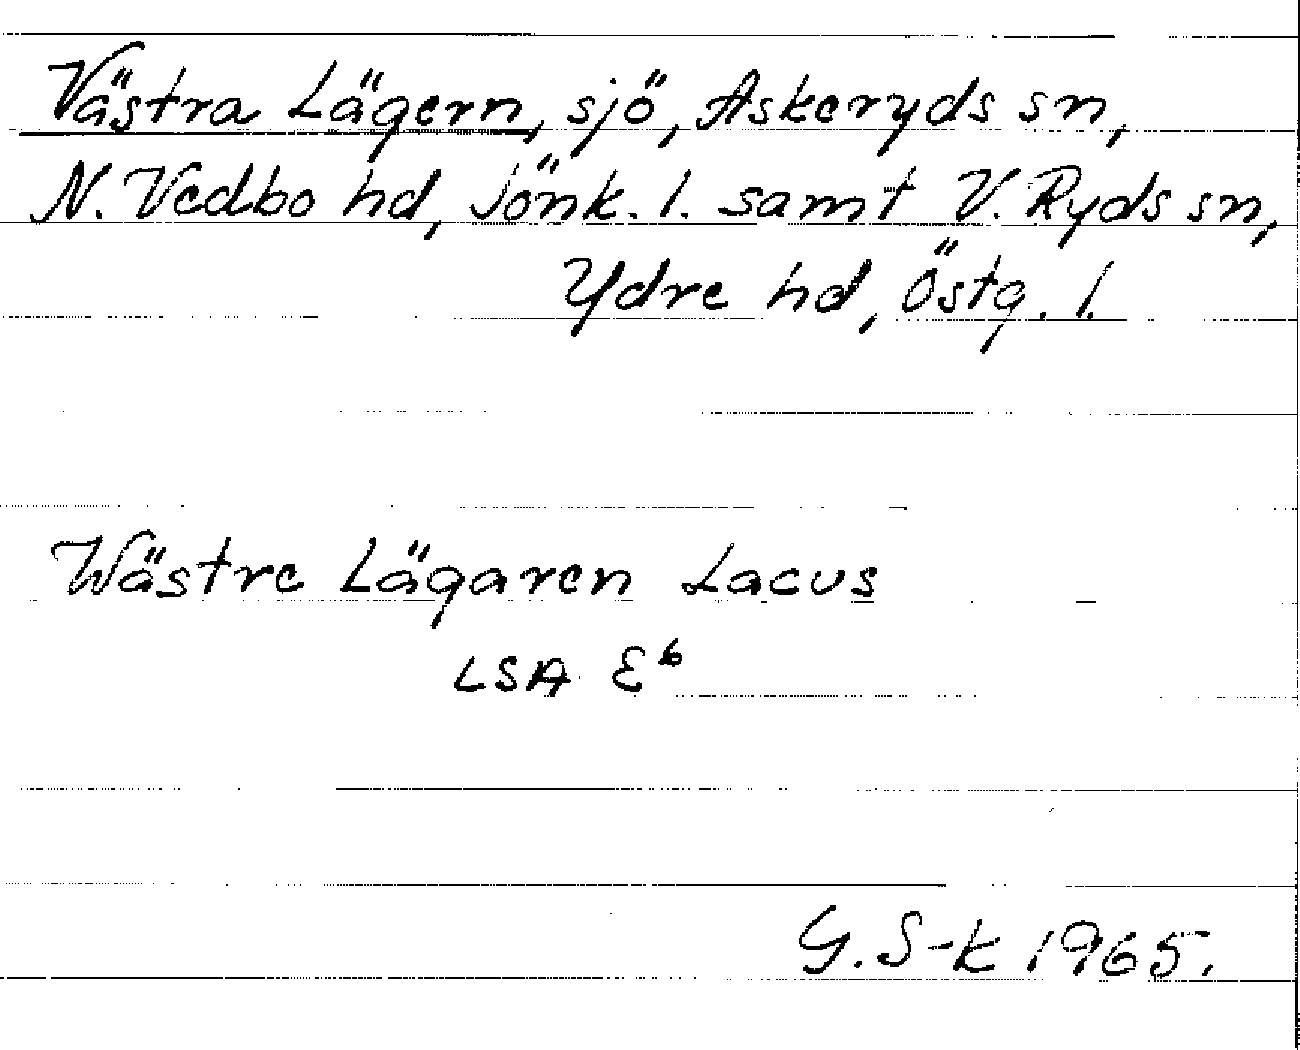 Västra Lägern, sjö, Askeryds sn,
N. Vedbo hd, Jönk. l. samt V. Ryds sn,
Ydre hd, Östg. l.
Wästre Lägaren Lacus
LSA E⁶
G. S-k 1965.